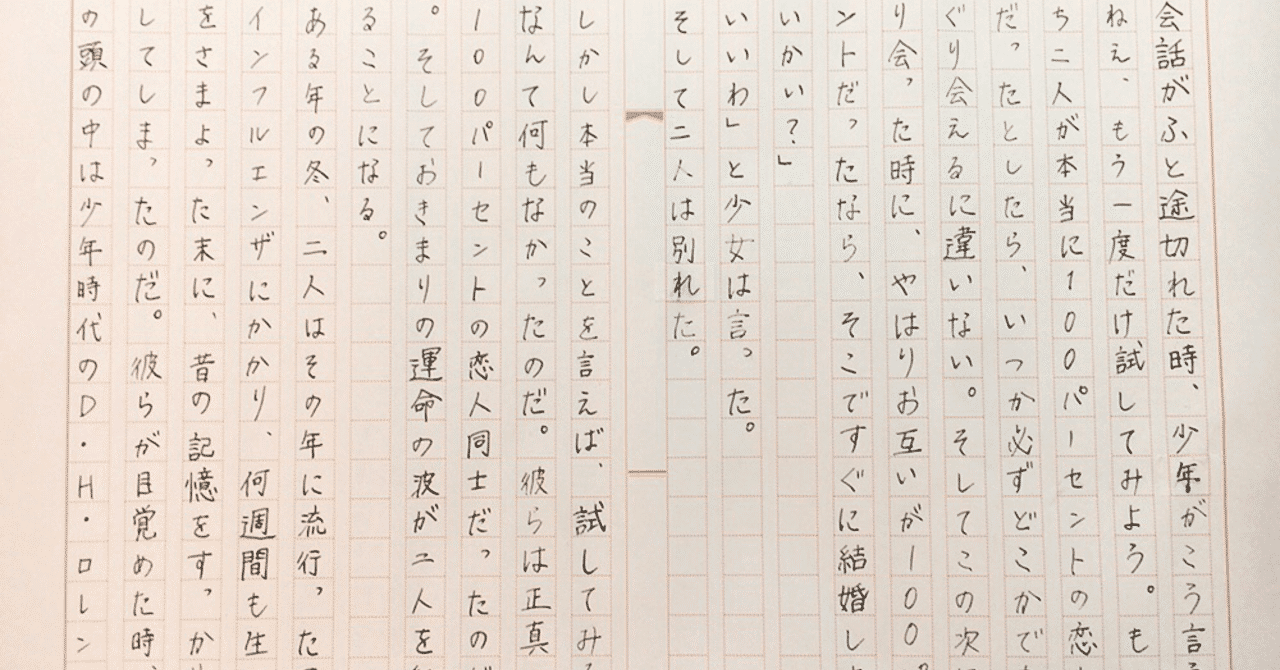 会話がふと途切れた時、少年がこう言
ねえ、もう一度だけ試してみよう。も
ち二人が本当に100パーセントの恋
だったとしたら、いつか必ずどこかで
ぐり会えるに違いない。そしてこの次
り会った時に、やはりお互いが100
ントだったなら、そこですぐに結婚し
いかい?」
いいわ」と少女は言った。
そして二人は別れた。
しかし本当のことを言えば、試してみ
なんて何もなかったのだ。彼らは正真
100パーセントの恋人同士だったの
。そしておきまりの運命の波が二人を
ることになる。
ある年の冬、二人はその年に流行った
インフルエンザにかかり、何週間も生
をさまよった末に、昔の記憶をすっか
してしまったのだ。彼らが目覚めた時、
の頭の中は少年時代のD・H・ロレン